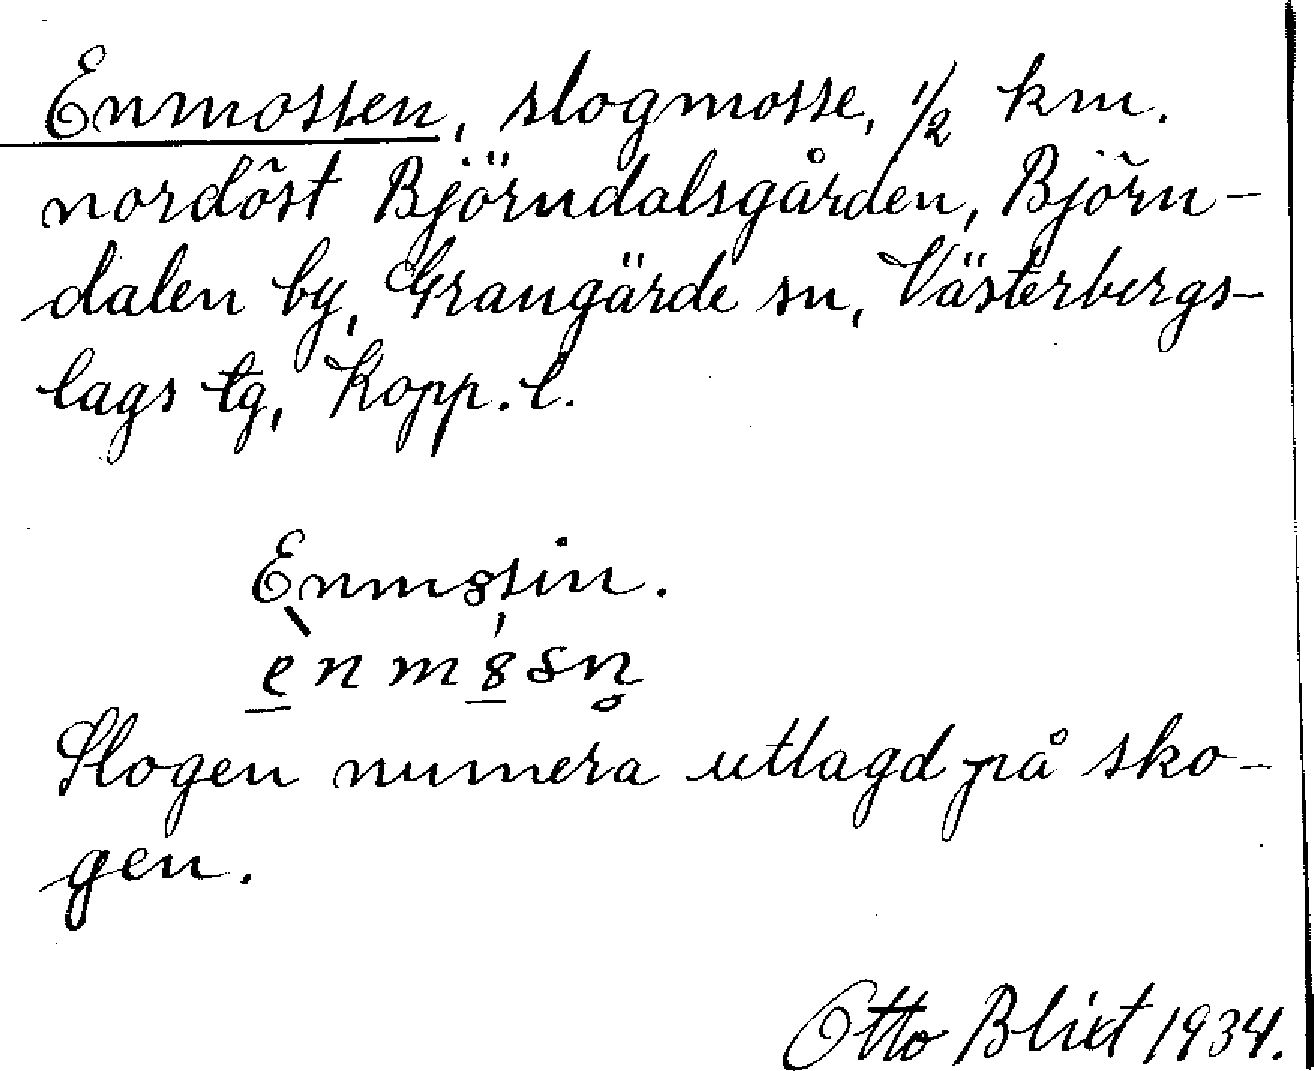 Enmossen, slogmosse, 1/2 km.
nordöst Björndalsgården, Björn-
dalen by, Grangärde sn, Västerbergs-
lags tg, Kopp. l.
Enm8sin.
ènm8sn̥
Slogen numera utlagd på sko-
gen.
Otto Blixt 1934.